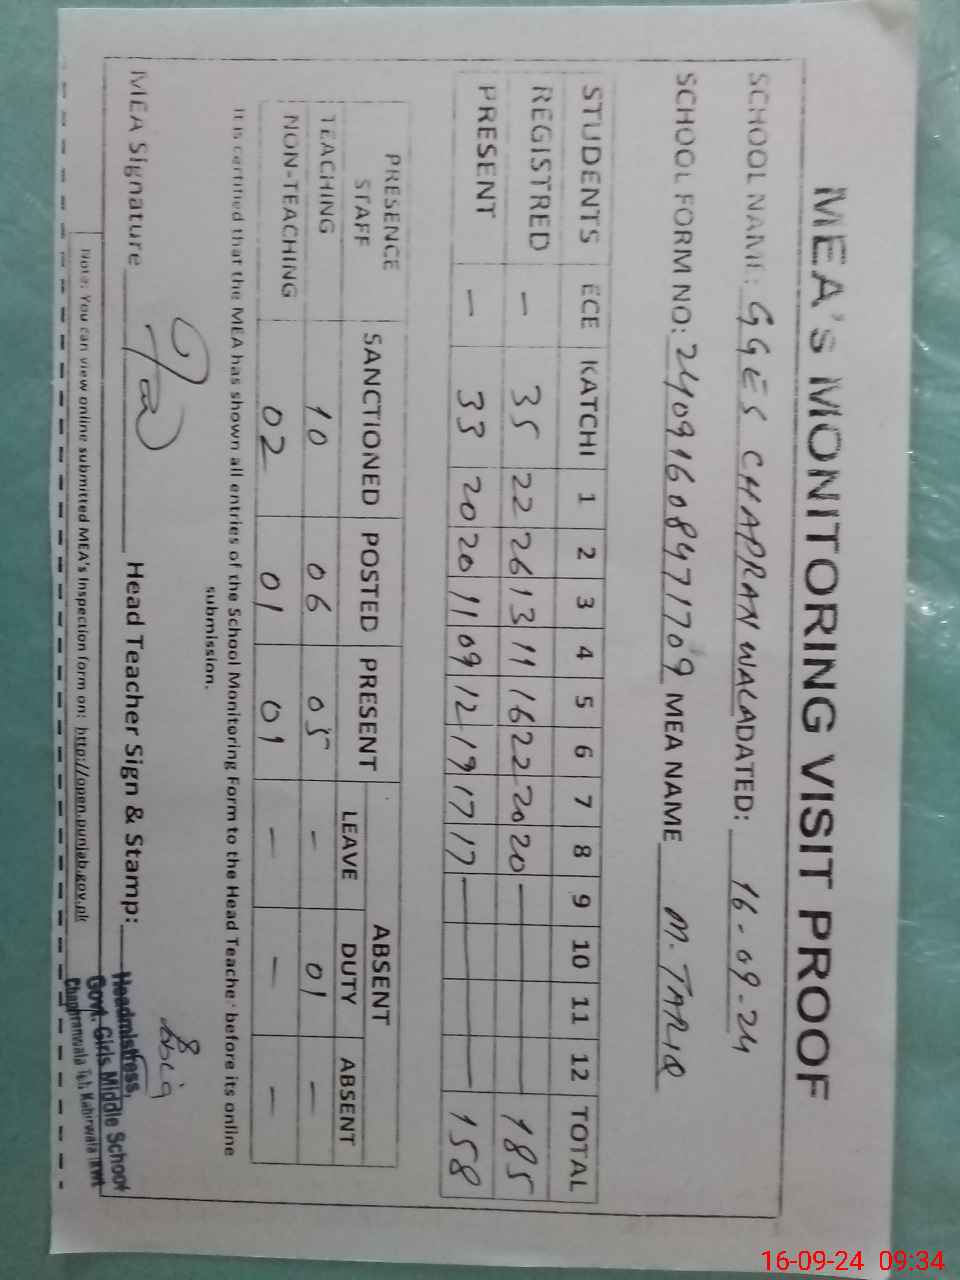 MEA'S MONITORING VISIT PROOF
SCHOOL NAME: GGES CHAPRAN WALA DATED: 16-09-24
SCHOOL FORM NO: 24091608471709 MEA NAME M. TARIQ
STUDENTS ECE KATCHI 1 2 3 4 5 6 7 8 9 10 11 12 TOTAL
REGISTRED — 35 22 26 13 11 16 22 20 20 — 185
PRESENT — 33 20 20 11 09 12 19 17 17 — 158
PRESENCE STAFF SANCTIONED POSTED PRESENT ABSENT
LEAVE DUTY ABSENT
TEACHING 10 06 05 - 01 -
NON-TEACHING 02 01 01 - - -
It is certified that the MEA has shown all entries of the School Monitoring Form to the Head Teacher before its online
submission.
MEA Signature Head Teacher Sign & Stamp:
Headmistress,
Govt. Girls Middle School
Chapranwala Teh Kabirwala (KWI
Note: You can view online submitted MEA's Inspection form on: http://open.punjab.gov.pk
16-09-24 09:34